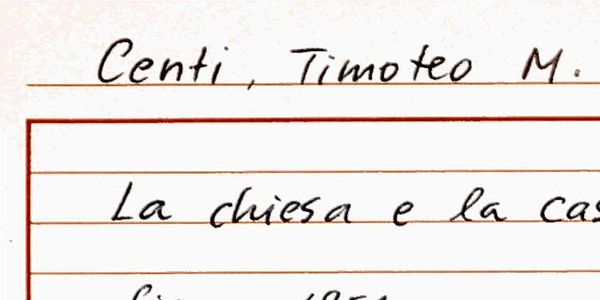 Centi, Timoteo M.
La chiesa e la cas